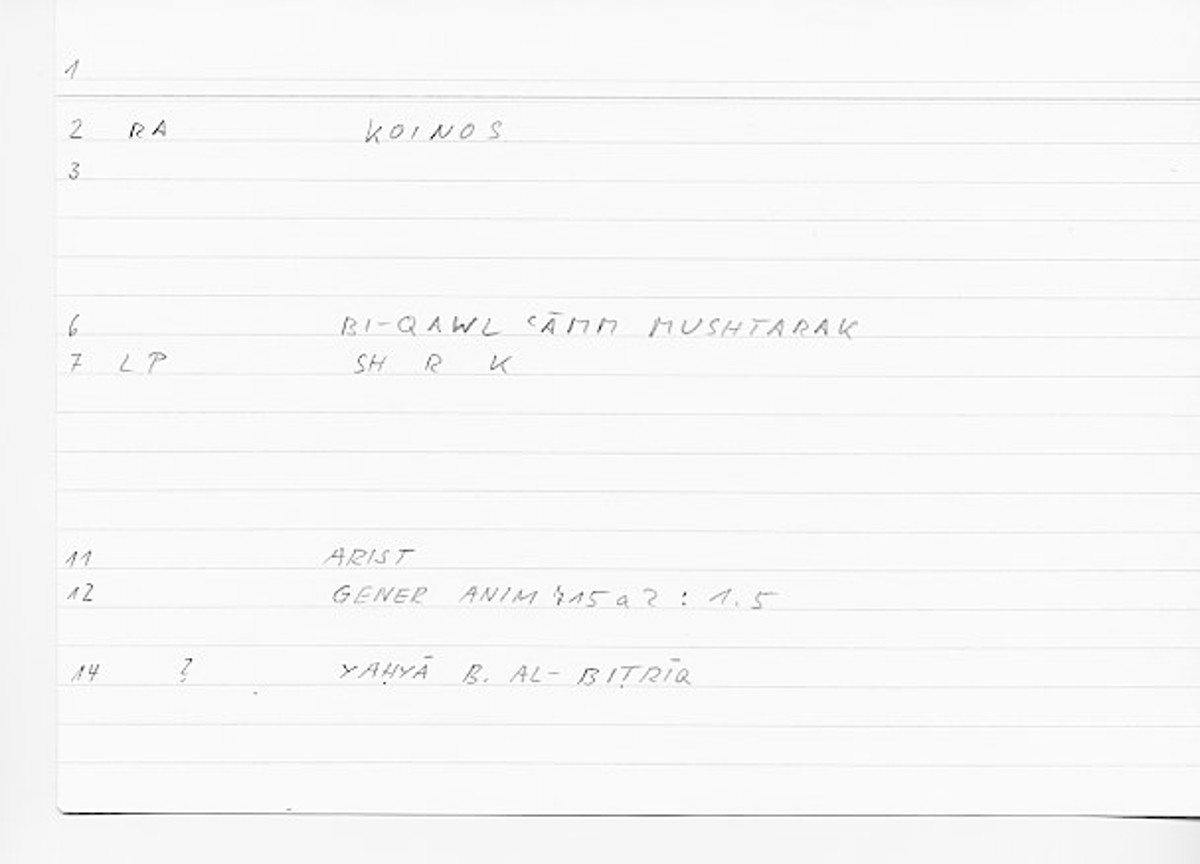 1
2 RA KOINOS
3
6 BI-QAWL ʿĀMM MUSHTARAK
7 LP SH R K
11 ARIST
12 GENER ANIM 715a2 : 1.5
14 ? YAḤYĀ B. AL-BIṬRĪQ